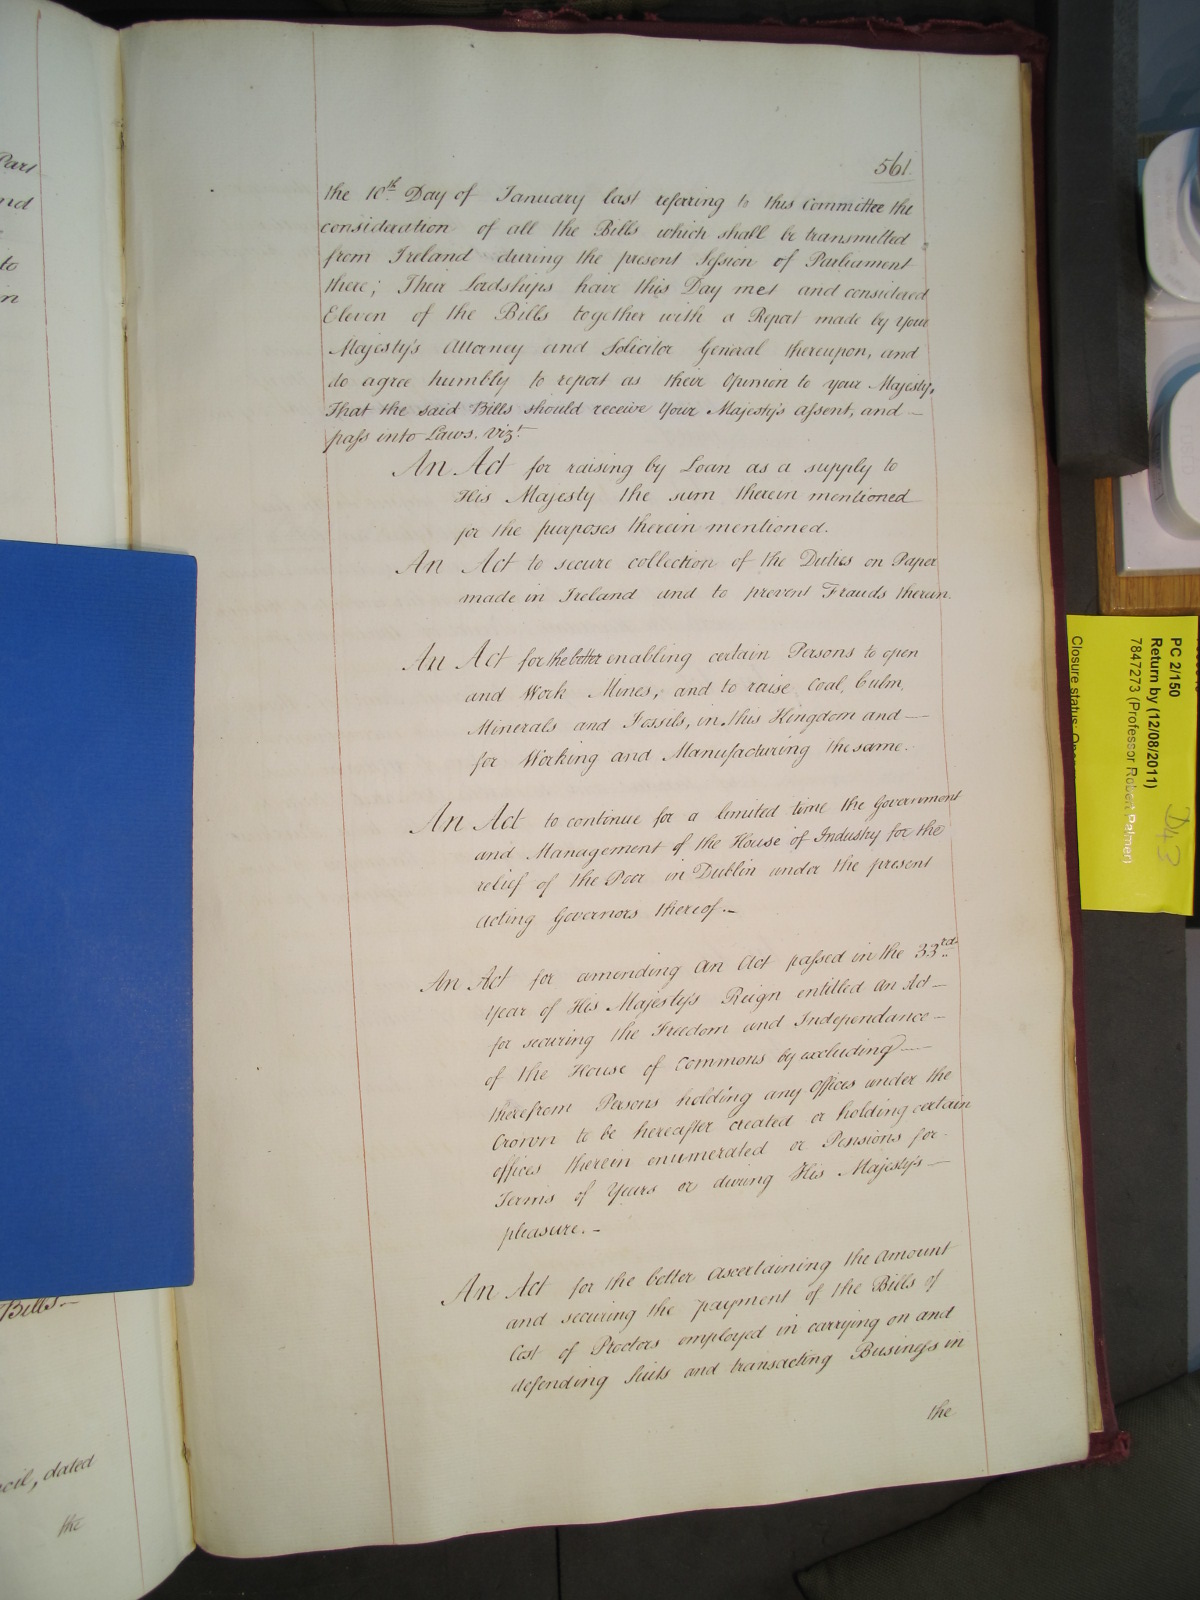 561.
the 10th Day of January last referring to this Committee the
consideration of all the Bills which shall be transmitted
from Ireland during the present Session of Parliament
there; Their Lordships have this Day met and considered
Eleven of the Bills together with a Report made by Your
Majesty's Attorney and Solicitor General thereupon, and
do agree humbly to report as their Opinion to your Majesty,
That the said Bills should receive Your Majesty's assent, and —
pass into Laws. Vizt.
An Act for raising by Loan as a supply to
His Majesty the sum therein mentioned
for the purposes therein mentioned.
An Act to secure collection of the Duties on Paper
made in Ireland and to prevent Frauds therein.
An Act for the better enabling certain Persons to open
and Work Mines, and to raise Coal, Culm,
Minerals and Fossils, in this Kingdom and —
for Working and Manufacturing the same.
An Act to continue for a limited time the Government
and Management of the House of Industry for the
relief of the Poor in Dublin under the present
acting Governors thereof. —
An Act for amending an Act passed in the 33rd
Year of His Majesty's Reign entitled an Act —
for securing the Freedom and Independance —
of the House of Commons by excluding —
therefrom Persons holding any Offices under the
Crown to be hereafter created or holding certain
offices therein enumerated or Pensions for
Terms of Years or during His Majesty's —
pleasure. —
An Act for the better ascertaining the amount
and securing the payment of the Bills of
Cost of Proctors employed in carrying on and
defending Suits and transacting Business in
the
Part
to
in
Bills —
dated
the
PC 2/150
Return by (12/08/2011)
7847273 (Professor Robert Palmer)
Closure status:
D43